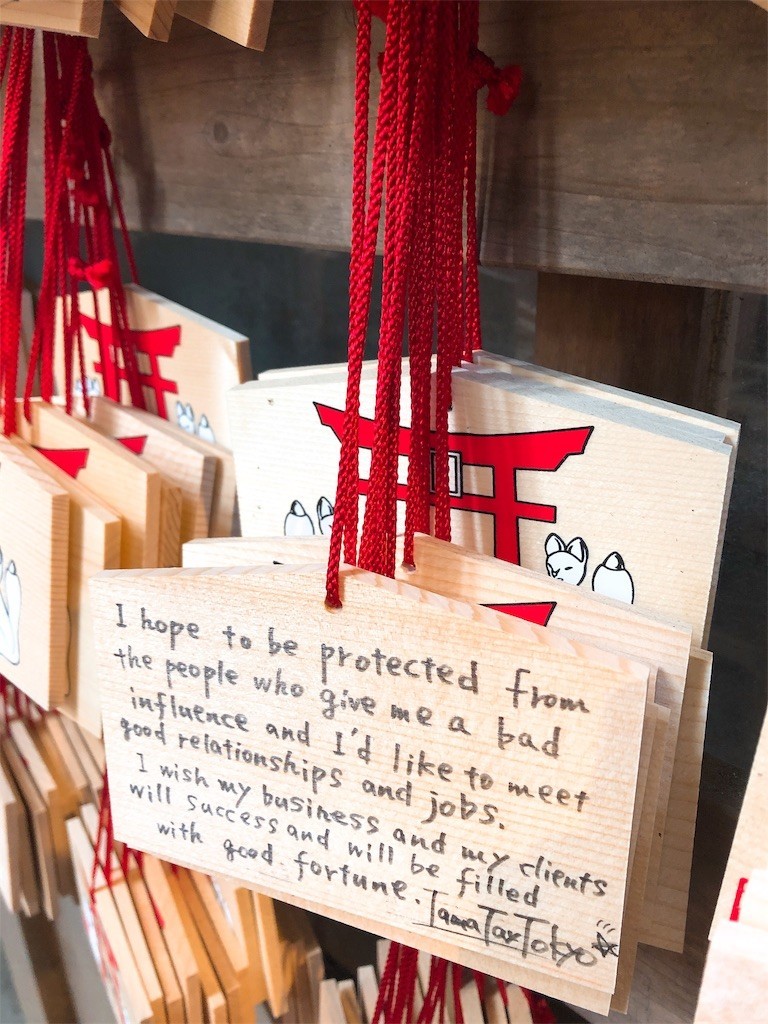 I hope to be protected from
the people who give me a bad
influence and I'd like to meet
good relationships and jobs.
I wish my business and my clients
will success and will be filled
with good fortune. TamaTaxTokyo